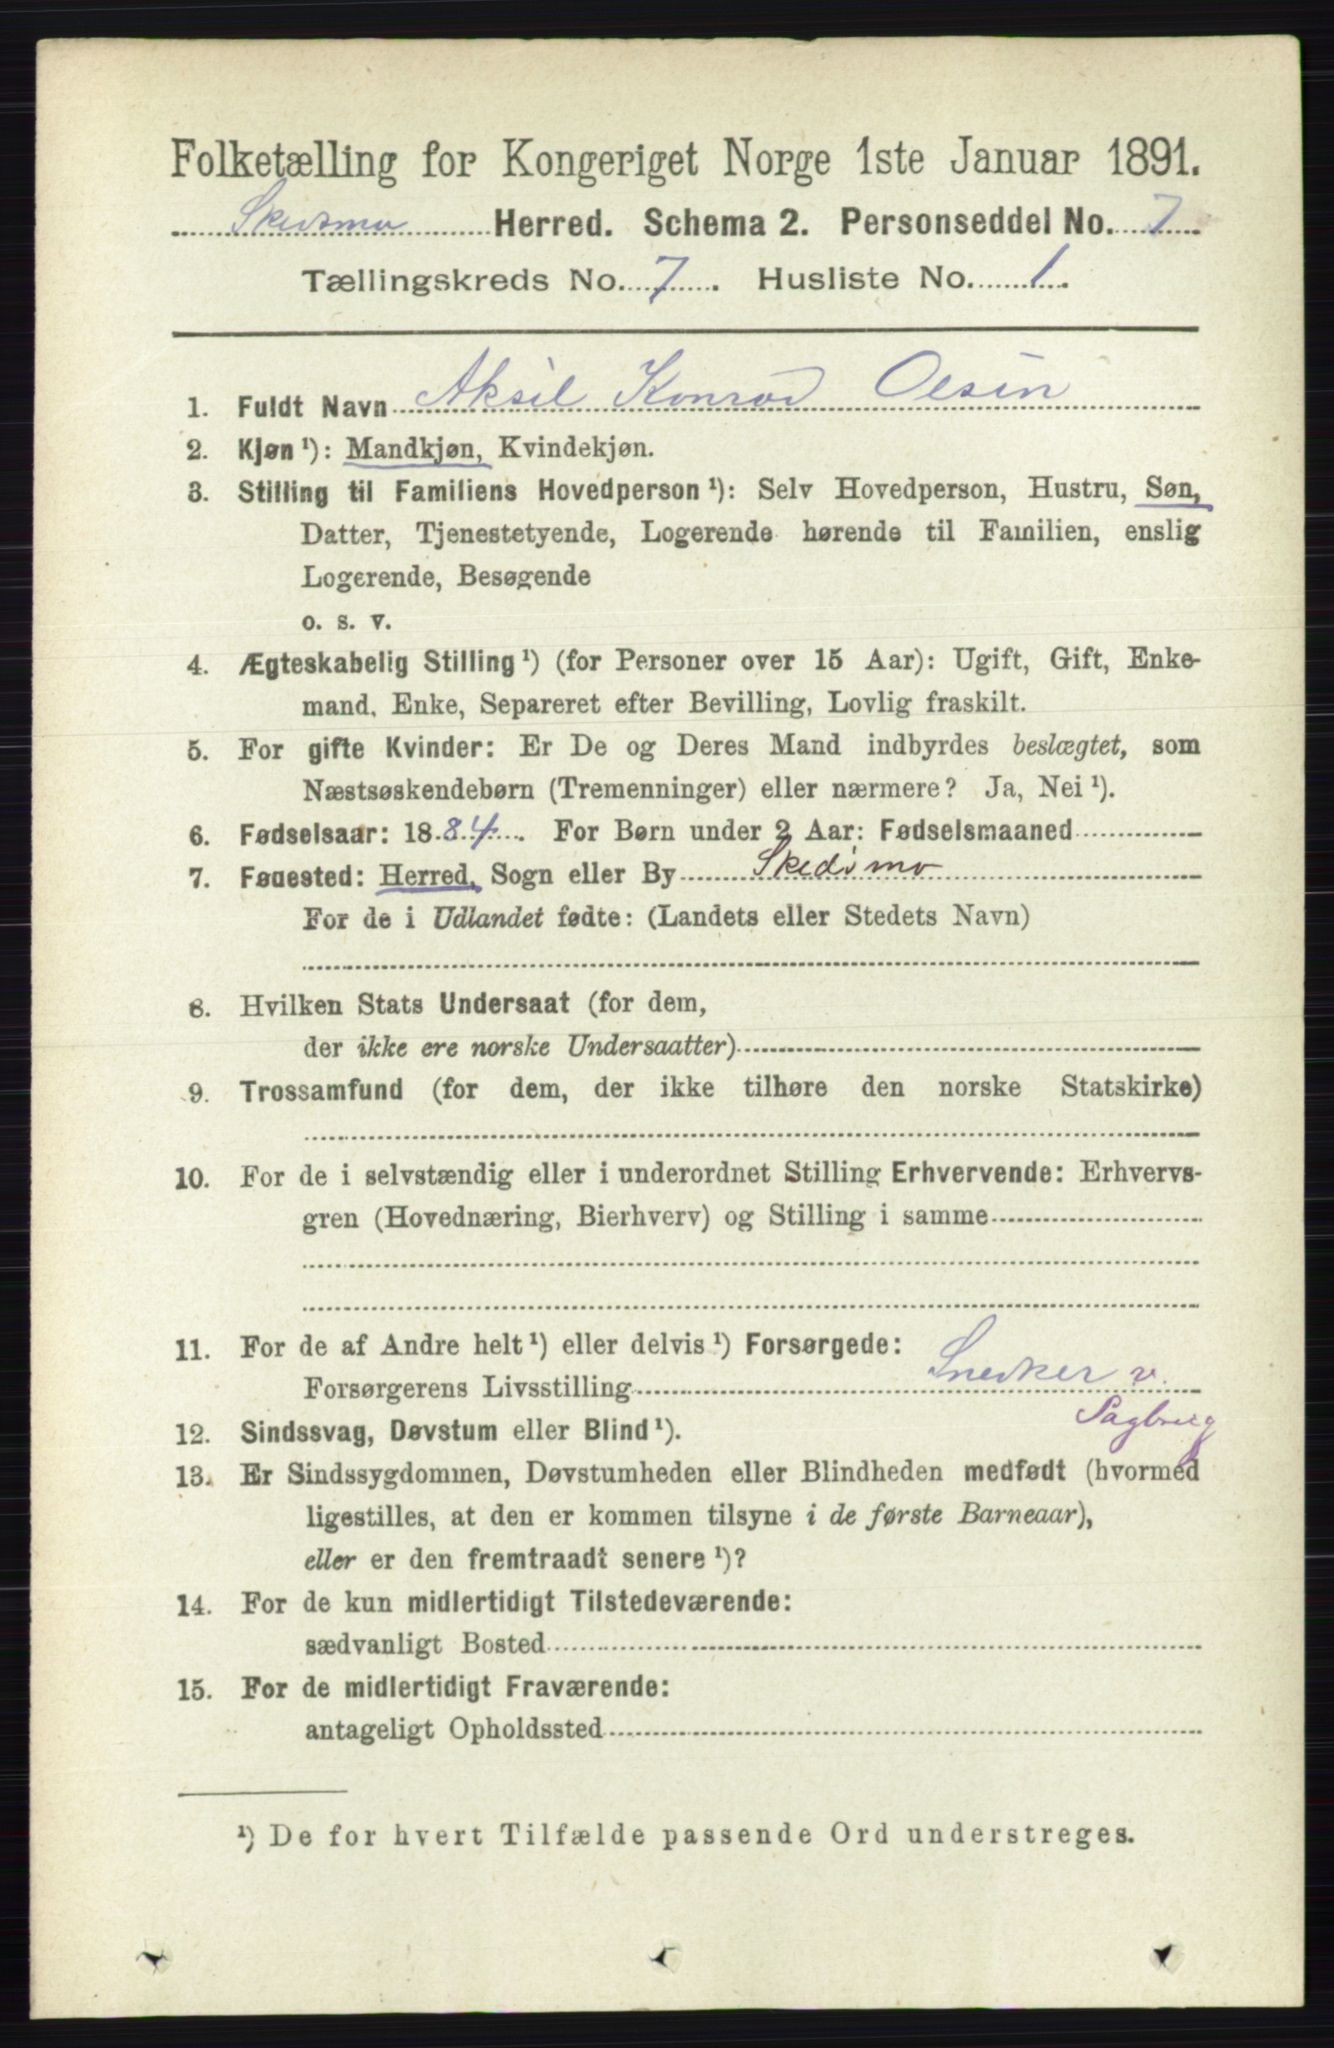 Folketælling for Kongeriget Norge 1ste Januar 1891.
Skedsmo Herred. Schema 2. Personseddel No. 7
Tællingskreds No. 7. Husliste No. 1.
1. Fuldt Navn Aksel Konrad Olsen
2. Kjøn¹): Mandkjøn, Kvindekjøn.
3. Stilling til Familiens Hovedperson¹): Selv Hovedperson, Hustru, Søn,
Datter, Tjenestetyende, Logerende hørende til Familien, enslig
Logerende, Besøgende
o. s. v.
4. Ægteskabelig Stilling¹) (for Personer over 15 Aar): Ugift, Gift, Enke-
mand, Enke, Separeret efter Bevilling, Lovlig fraskilt.
5. For gifte Kvinder: Er De og Deres Mand indbyrdes beslægtet, som
Næstsøskendebørn (Tremenninger) eller nærmere? Ja, Nei¹).
6. Fødselsaar: 1884. For Børn under 2 Aar: Fødselsmaaned
7. Fødested: Herred, Sogn eller By Skedsmo
For de i Udlandet fødte: (Landets eller Stedets Navn)
8. Hvilken Stats Undersaat (for dem,
der ikke ere norske Undersaatter)
9. Trossamfund (for dem, der ikke tilhøre den norske Statskirke)
10. For de i selvstændig eller i underordnet Stilling Erhvervende: Erhvervs-
gren (Hovednæring, Bierhverv) og Stilling i samme
11. For de af Andre helt¹) eller delvis¹) Forsørgede:
Forsørgerens Livsstilling Snedker v.
Sagbrug
12. Sindssvag, Døvstum eller Blind¹).
13. Er Sindssygdommen, Døvstumheden eller Blindheden medfødt (hvormed
ligestilles, at den er kommen tilsyne i de første Barneaar),
eller er den fremtraadt senere¹)?
14. For de kun midlertidigt Tilstedeværende:
sædvanligt Bosted
15. For de midlertidigt Fraværende:
antageligt Opholdssted
¹) De for hvert Tilfælde passende Ord understreges.